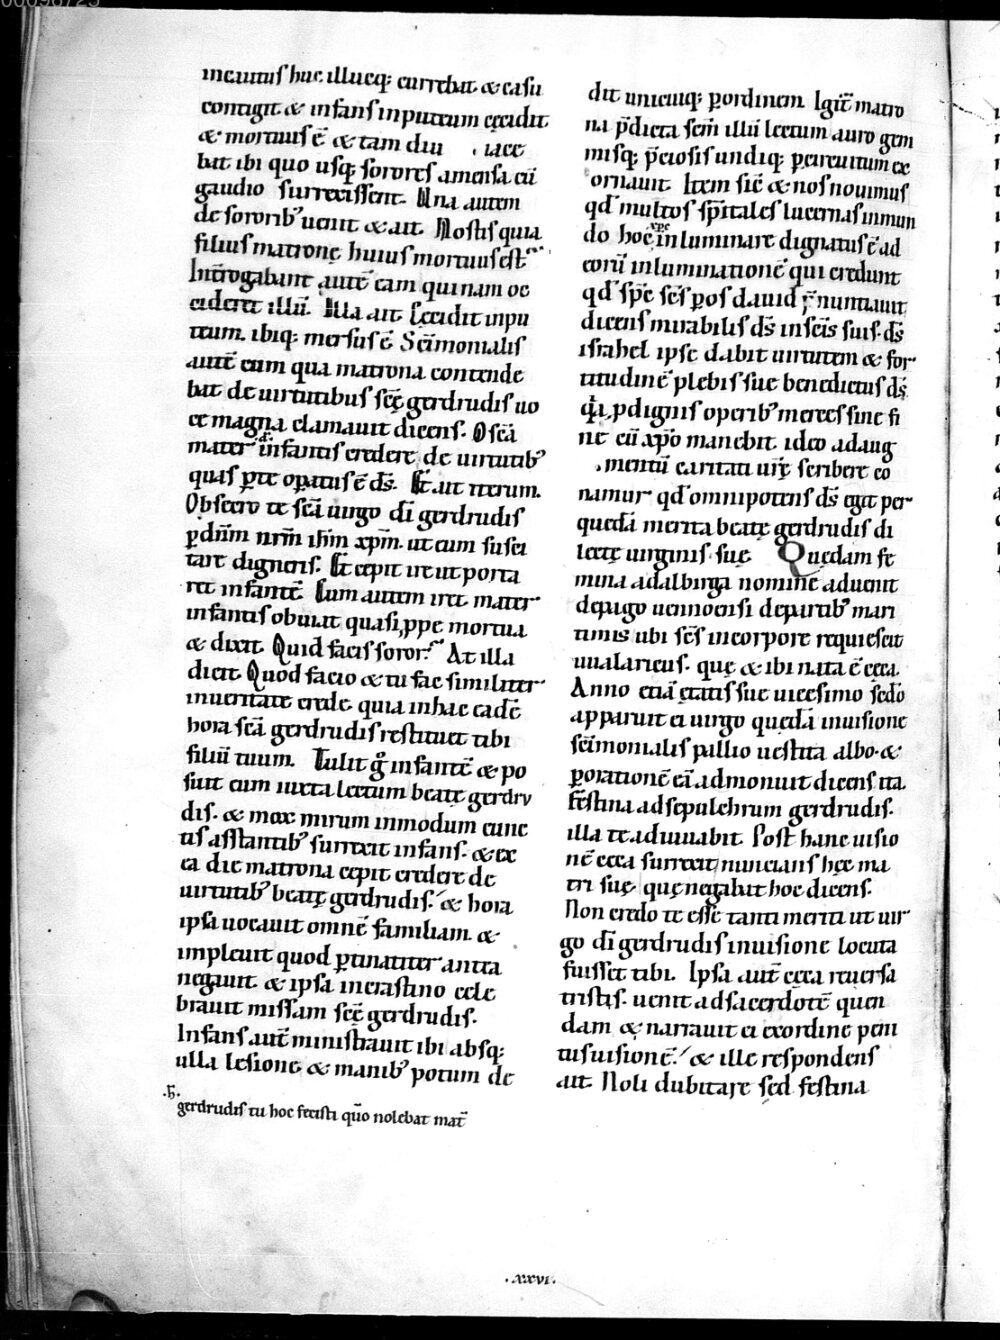 incautus huc illucq; currebat & casu
contigit & infans in puteum cecidit
& mortuus ē & tam diu iace
bat ibi quo usq; sorores a mensa cū
gaudio surrexissent. Una autem
de sororib; uenit & ait. Nostis quia
filius matronę huius mortuus est
Int̄rogabant autē eam qui nam oc
cideret illū. Illa ait Cecidit in pu
teum. ibiq; mersus ē. Sc̄imonialis
autē cum qua matrona contende
bat de uirtutibus scę gerdrudis uo
ce magna clamauit dicens. O sc̄a
mater infantis credere de uirtutib;
quas p te opatus ē ds̄. Et ait iterum.
Obsecro te sc̄a uirgo dī gerdrudis
p dn̄m nr̄m ihm̄ xpm̄. ut eum susci
tare digneris. Et cepit ire ut porta
ret infantē. Cum autem iret mater
infantis obuiat quasi ppe mortua
& dixit Quid facis soror? At illa
dicit Quod facio & tu fac similiter
in ueritate crede quia in hac eadē
hora sc̄a gerdrudis restituet tibi
filiū tuum. Tulit g infantē & po
suit eum iuxta lectum beatę gerdru
dis. & mox mirum in modum cunc
tis asstantib; surrexit infans. & ex
ea die matrona cepit credere de
uirtutib; beatę gerdrudis. & hora
ipsa uocauit omnē familiam &
impleuit quod ptinatiter antea
negauit & ipsa in crastino cele
brauit missam scę gerdrudis.
Infans autē ministrauit ibi absq;
ulla lesione & manib; potum de
.h.
gerdrudis tu hoc fecisti quō nolebat mat̄
dit unicuiq; p ordinem Igit̄ matro
na p̄dicta sem̄ illū lectum auro gem
misq; p̄ciosis undiq; p circuitum ex
ornauit. Item sic & nos nouimus
qd multos sp̄itales lucernas in mun
do hoc xpc inluminare dignatus ē ad
eorū inluminationē qui credunt
qd sp̄c scs p os dauid p̄nuntiauit
dicens mirabilis ds̄ in scīs suis. ds̄
israhel ipse dabit uirtutem & for
titudinē plebis sue benedictus ds̄
qa p dignis operib; merces sine fi
ne cū xpo manebit. ideo ad aug
mentū caritati urę scribere co
namur qd omnipotens ds̄ egit per
quedā merita beatę gerdrudis di
lecte uirginis suę Quedam fe
mina adalbirga nomine aduenit
de pago uennoensi de partib; mari
timis ubi scs in corpore requiescit
uualaricus. quę & ibi nata ē ceca.
Anno etiā etatis sue uicesimo scdo
apparuit ei uirgo quedā in uisione
sc̄imonialis pallio uestita albo. &
p orationē eā admonuit dicens ita.
Festina ad sepulchrum gerdrudis.
illa te adiuuabit. Post hanc uisio
nē ceca surrexit nuncians hęc ma
tri suę quę negabat hoc dicens.
Non credo te esse tanti meriti ut uir
go dī gerdrudis in uisione locuta
fuisset tibi. Ipsa autē ceca reuersa
tristis. uenit ad sacerdotē quen
dam & narrauit ei ex ordine peni
tus uisionē. & ille respondens
ait Noli dubitare sed festina
.xxvi.